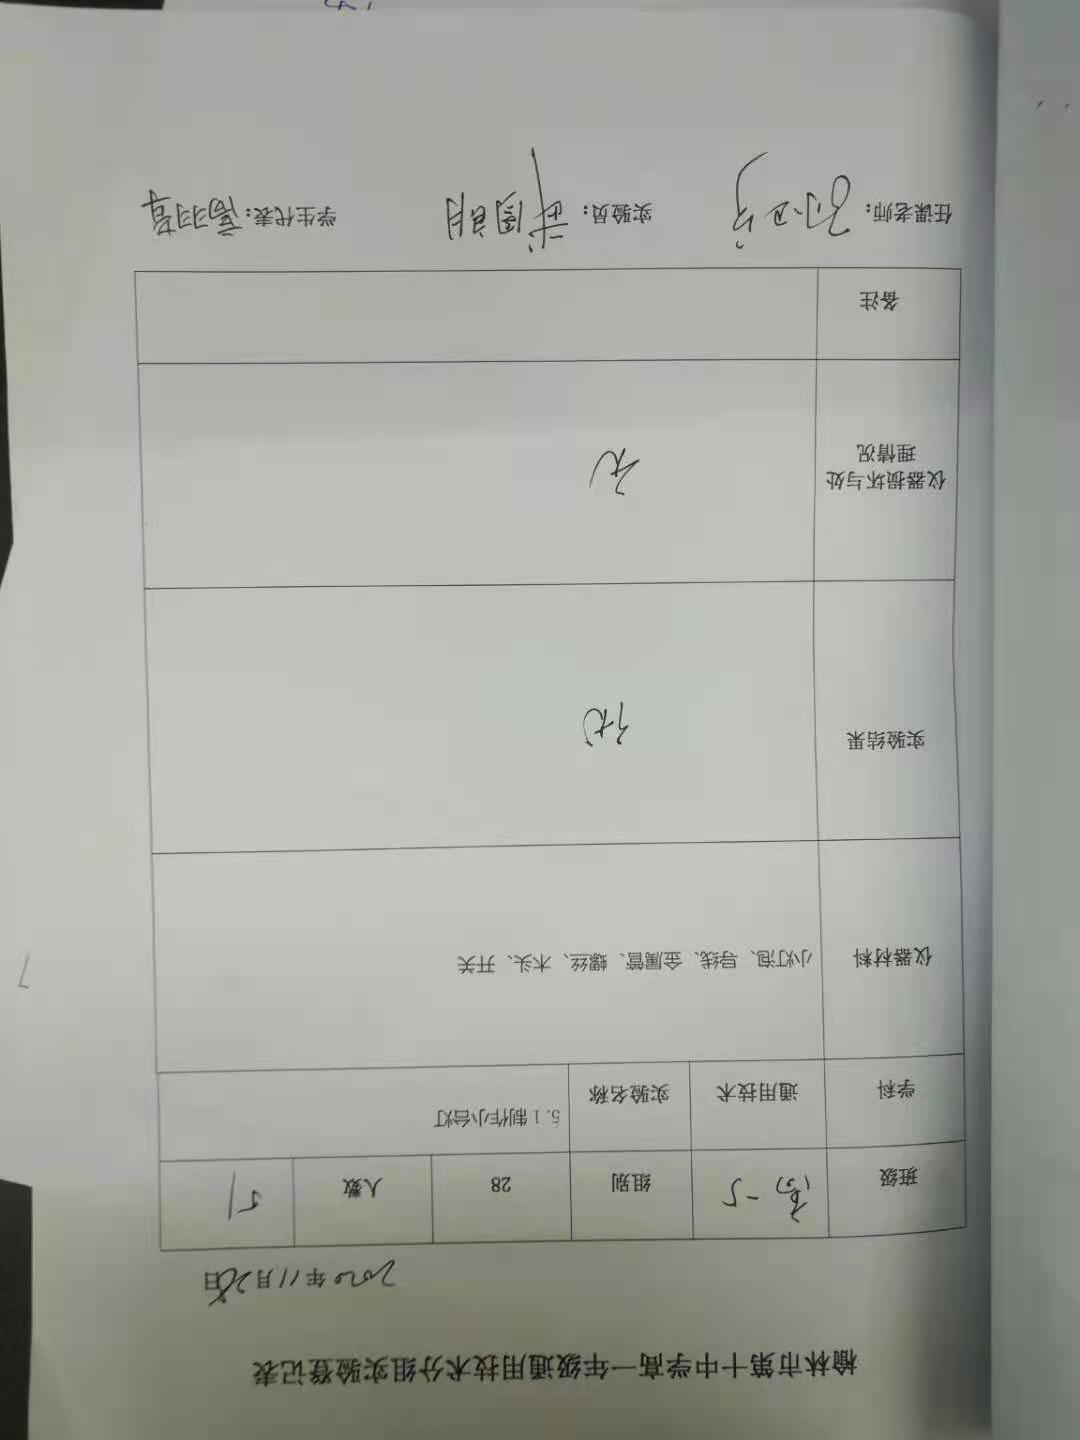 榆林市第十中学高一年级通用技术分组实验登记表
2020年11月2日
班级 高一5 组别 28 人数 51
学科 通用技术 实验名称 5.1制作小台灯
仪器材料 小灯泡、导线、金属管、螺丝、木头、开关
实验结果 优
仪器损坏与处
理情况 无
备注
任课老师： 实验员： 学生代表：高羽